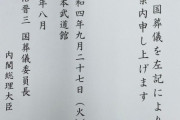 国葬儀を左記により
案内申し上げます
和四年九月二十七日（火
本武道館
年八月
晋三 国葬儀委員長
内閣総理大臣